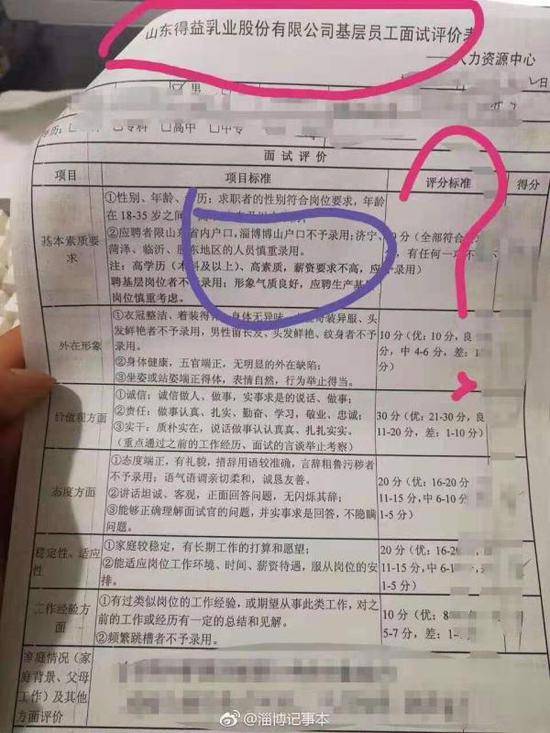 山东得益乳业股份有限公司基层员工面试评价表
人力资源中心
男
日
专科 高中 中专
面试评价
项目 项目标准 评分标准 得分
基本素质要求
①性别、年龄、 历：求职者的性别符合岗位要求，年龄
在 18-35 岁之间
②应聘者限山东省内户口，淄博博山户口不予录用；济宁、
菏泽、临沂、 东地区的人员慎重录用。
注：高学历（本科及以上）、高素质，薪资要求不高，应
聘基层岗位者不予录用；形象气质良好，应聘生产基
岗位慎重考虑。
分（全部符合
，有任何一项不
录用）
外在形象
①衣冠整洁、着装得 身体无异味 装异服、头
发鲜艳者不予录用，男性留长发、头发鲜艳、纹身者不予
录用。
②身体健康，五官端正，无明显的外在缺陷；
③坐姿或站姿端正得体，表情自然，行为举止得当。
10 分（优：10 分，良
分，中 4-6 分，差：
分）
价值观方面
①诚信：诚信做人、做事，实事求是的说话、做事；
②责任：做事认真、扎实、勤奋、学习、敬业、忠诚；
③实干：质朴实在，说话做事认认真真、扎扎实实，
（重点通过之前的工作经历、面试的言谈举止考察）
30 分（优：21-30 分，良
11-20 分，差：1-10 分）
态度方面
①态度端正，有礼貌，措辞用语较准确，言辞粗鲁污秽者
不予录用；语气语调亲切柔和，诚恳友善。
②讲话坦诚、客观，正面回答问题，无闪烁其辞；
③能够正确理解面试官的问题，并实事求是回答，不隐瞒
问题。
20 分（优：16-20
11-15 分，中 6-10
1-5 分）
稳定性、适应性
①家庭较稳定，有长期工作的打算和愿望；
②能适应岗位工作环境、时间、薪资待遇，服从岗位的安
排。
20 分（优：16-20
11-15 分，中 6-
1-5 分）
工作经验方面
①有过类似岗位的工作经验，或期望从事此类工作，对之
前的工作或经历有一定的总结和见解。
②频繁跳槽者不予录用。
10 分（优：8
5-7 分，差：1-
家庭情况（家
庭背景、父母
工作）及其他
方面评价
@淄博记事本